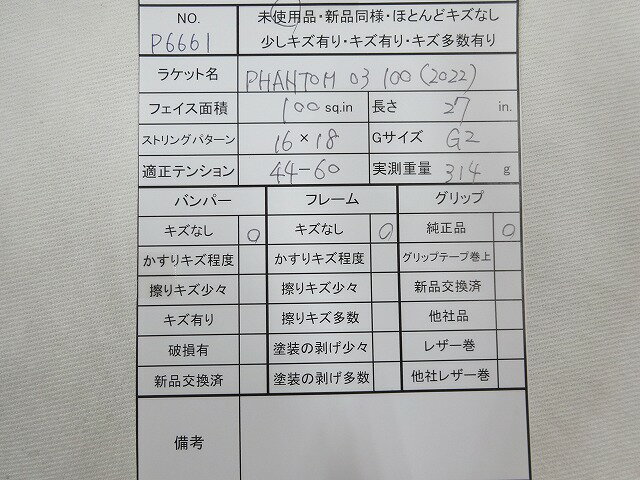 NO. 未使用品・新品同様・ほとんどキズなし
P6661 少しキズ有り・キズ有り・キズ多数有り
ラケット名 PHANTOM 03 100 (2022)
フェイス面積 100 sq.in 長さ 27 in.
ストリングパターン 16×18 Gサイズ G2
適正テンション 44-60 実測重量 314 g
バンパー フレーム グリップ
キズなし ○ キズなし ○ 純正品 ○
かすりキズ程度 かすりキズ程度 グリップテープ巻上
擦りキズ少々 擦りキズ少々 新品交換済
キズ有り 擦りキズ多数 他社品
破損有 塗装の剥げ少々 レザー巻
新品交換済 塗装の剥げ多数 他社レザー巻
備考